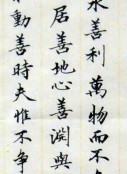 水善利萬物而不
居善地心善淵與
動善時夫惟不争